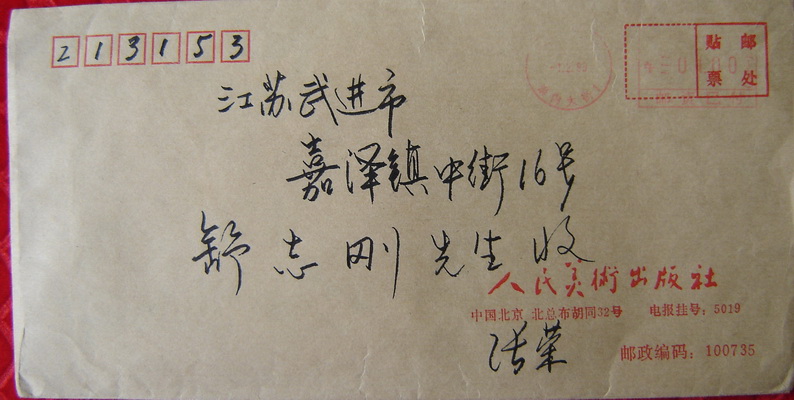 213153
贴 邮
票 处
江苏武进市
嘉泽镇中街16号
舒志刚先生 收
人民美術出版社
中国北京 北总布胡同32号 电报挂号：5019
张荣
邮政编码：100735